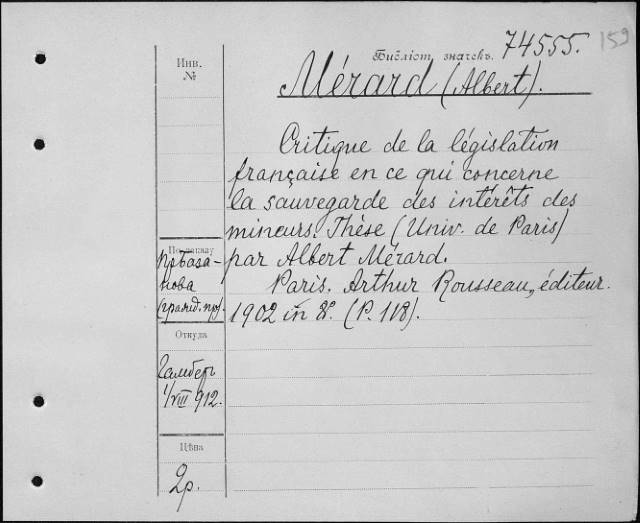 159
Библіот. значекъ. 74555.
Инв. №
Mérard (Albert).
Critique de la législation
française en ce qui concerne
la sauvegarde des intérêts des
mineurs. Thèse (Univ. de Paris)
par Albert Mérard.
Paris. Arthur Rousseau, éditeur.
1902 in 8º. (P. 118).
По заказу
нова
(гражд. пр).
Откуда
1/VIII 912.
Цѣна
2р.